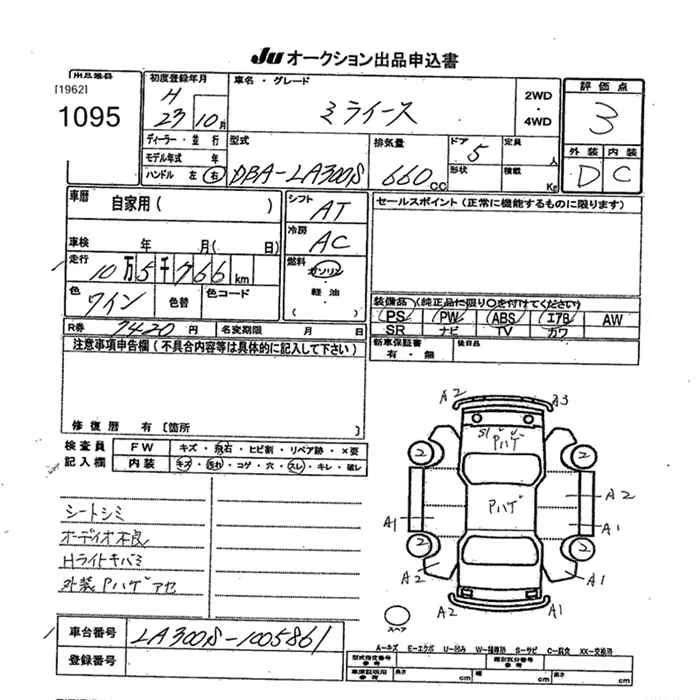 Ju オークション出品申込書
出品番号
[1962]
1095
初度登録年月
H
23 10月
車名・グレード
ミライース
2WD
・
4WD
評価点
3
外装 内装
D C
ディーラー・並行
モデル年式 年
ハンドル 左 右
型式
DBA-LA300S
排気量
660 CC
ドア
5
形状
定員
人
積載
Kg
車歴
自家用( )
車検 年 月( 日)
走行
10万5千766km
色
ワイン
色替
色コード
シフト
AT
冷房
AC
燃料
ガソリン
・
軽油
・
( )
セールスポイント(正常に機能するものに限ります)
装備品(純正品に限り○を付けてください)
PS PW ABS エアB AW
SR ナビ TV カワ
新車保証書
有・無
後日品
R券 7420円 名変期限 月 日
注意事項申告欄(不具合内容等は具体的に記入して下さい)
修復歴 有〔箇所 〕
検査員
記入欄
FW キズ・飛石・ヒビ割・リペア跡・×要
内装 キズ・汚れ・コゲ・穴・スレ・キレ・破レ
シートシミ
オーディオ不良
Hライトキバミ
外装Pハゲアセ
A2 A3
S1 Pハゲ
2 2
Pハゲ
A2
A1 A1
2 2
A2 A1
A2 A1
スペア
A-キズ E-エクボ U-凹み W-補修跡 S-サビ C-腐食 XX-交換済
車台番号 LA300S-1005861
登録番号
型式指定番号
参考
類別区分番号
参考
車庫証明用
参考
長さ cm 幅 cm 高さ cm